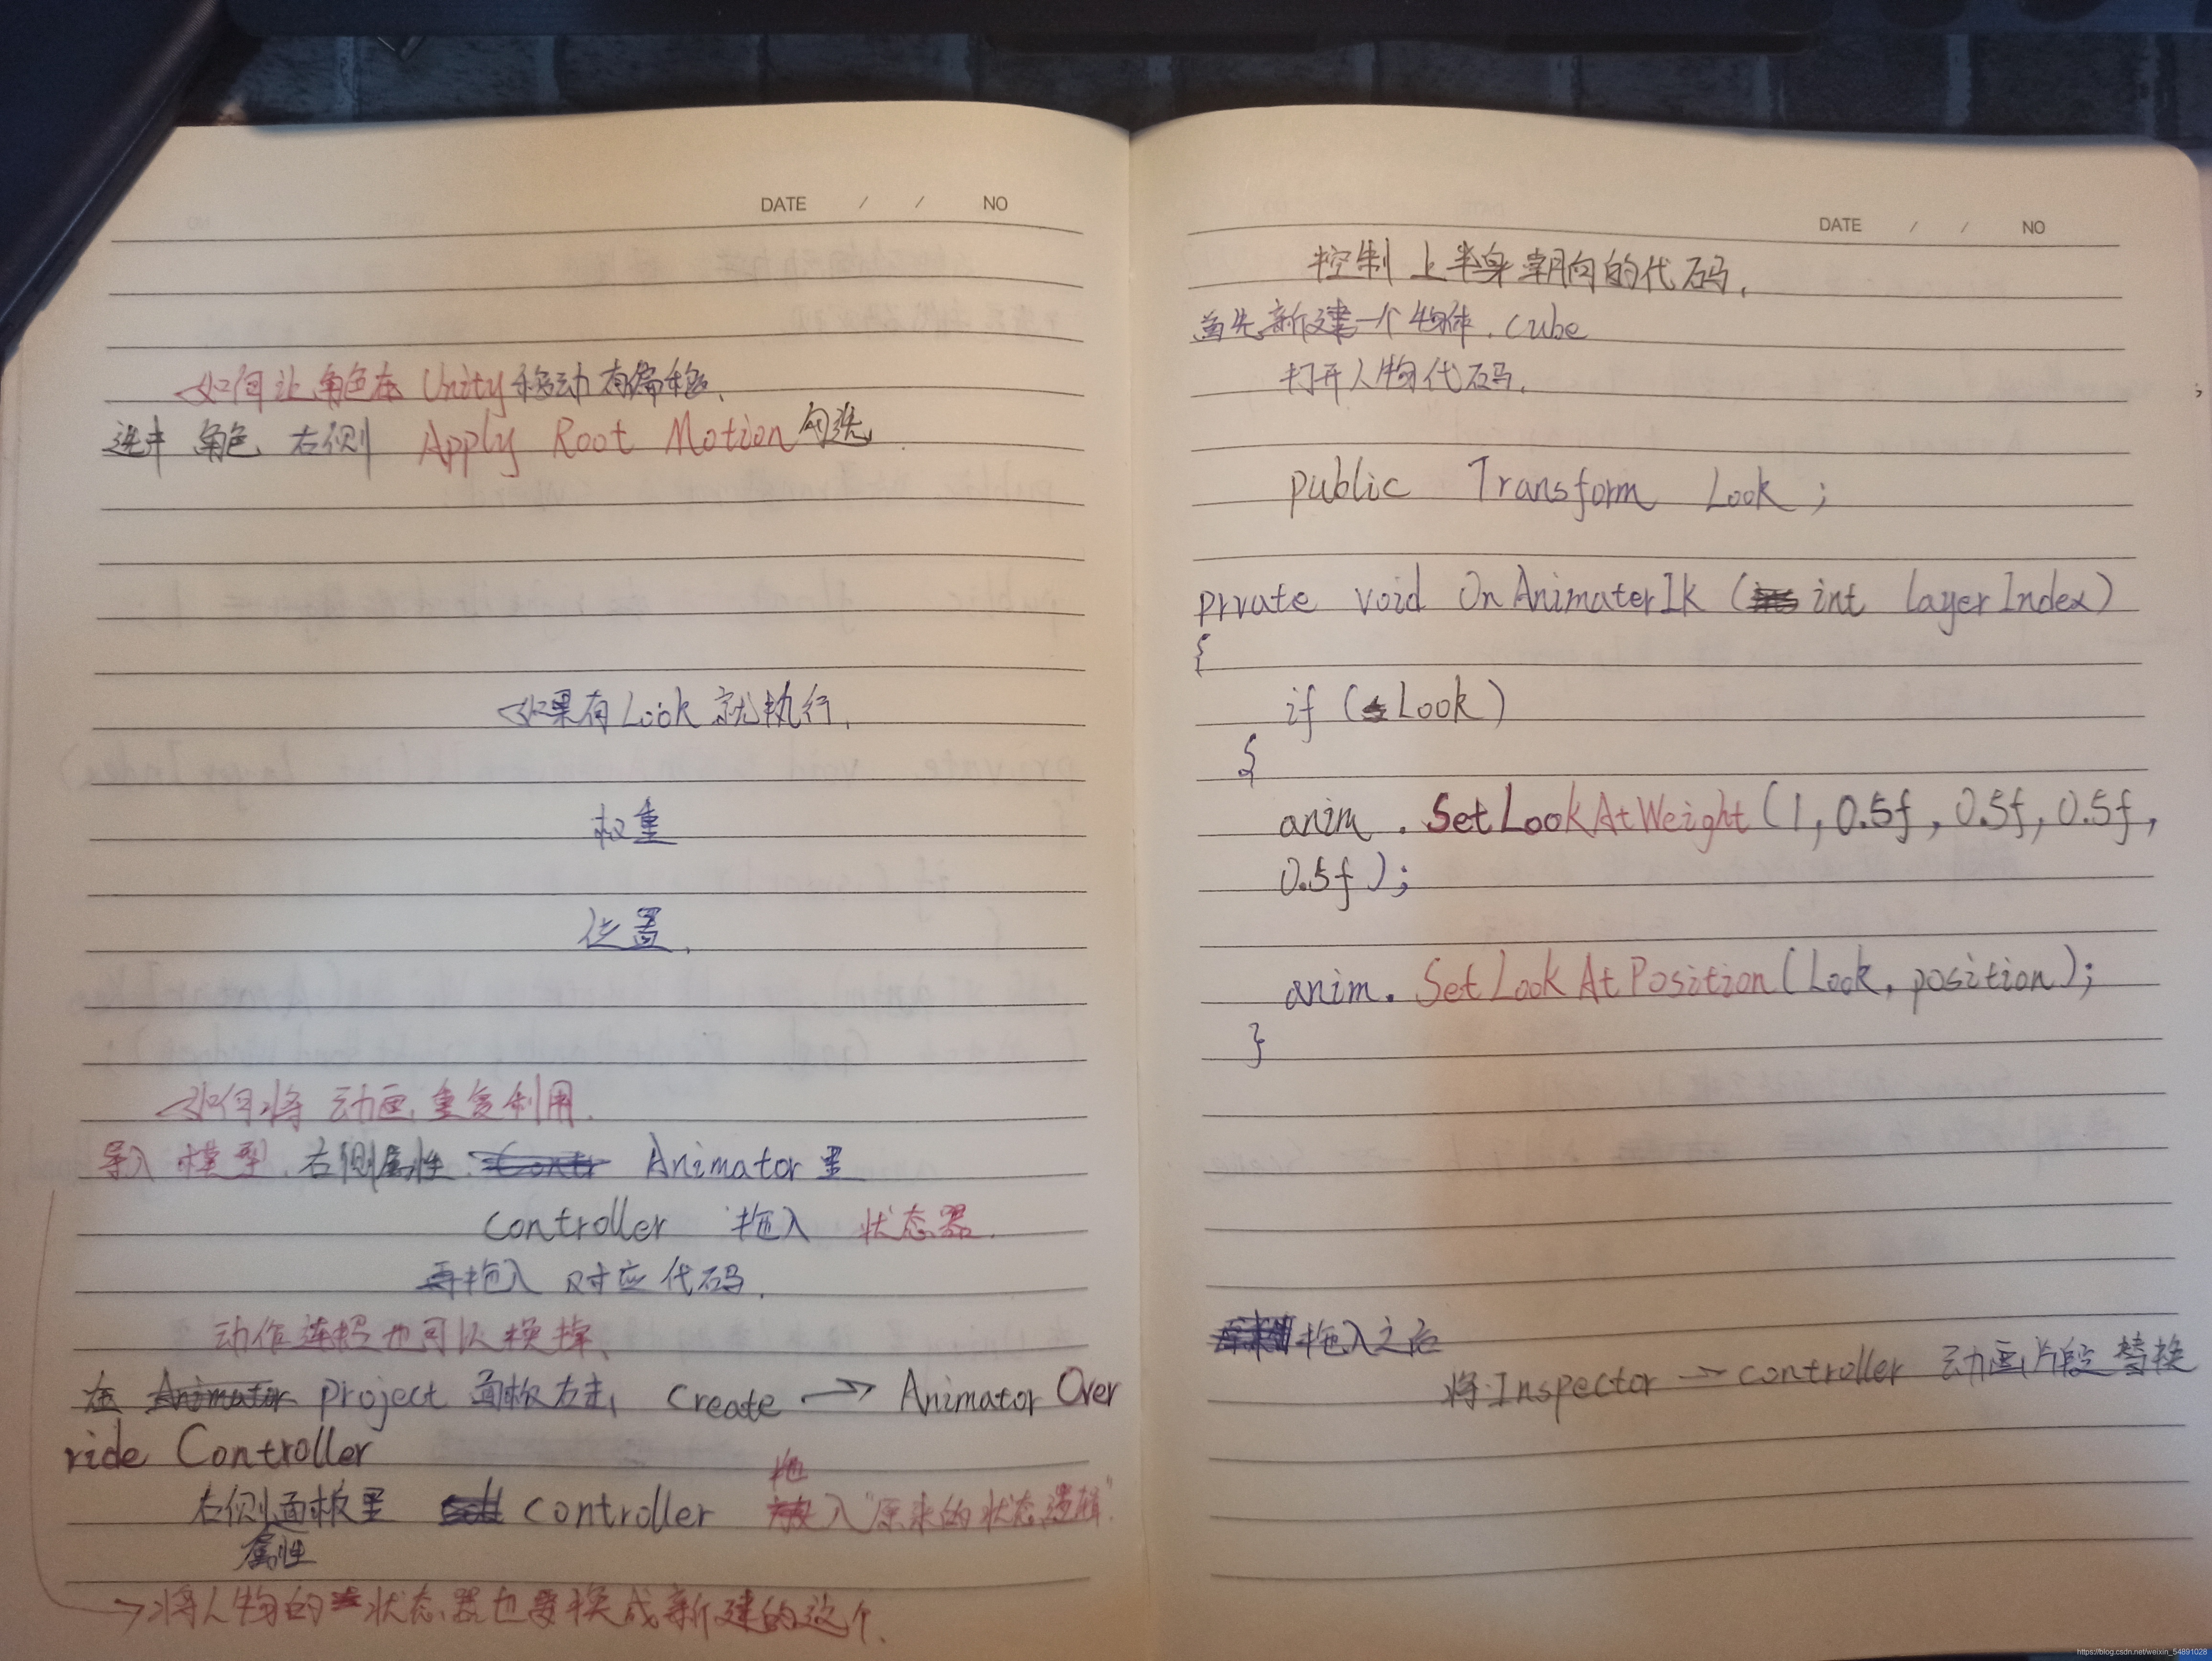 DATE / / NO
如何让角色在 Unity 移动有偏移.
选中 角色 右侧 Apply Root Motion 勾选.
如果有 Look 就执行.
权重
位置.
如何将 动画 重复利用.
导入 模型. 右侧属性. Animator 里
controller 拖入 状态器.
再拖入 对应代码.
动作连招也可以换掉、
在 project 面板右击, create → Animator Over
ride Controller
右侧面板里 controller 拖入"原来的状态逻辑".
属性
→将人物的状态器也要换成新建的这个.
DATE / / NO
控制上半身朝向的代码.
首先新建一个物体. Cube
打开人物代码.
public Transform Look ;
prvate void OnAnimaterIk ( int layerIndex)
{
if (Look)
{
anim . SetLookAtWeight (1, 0.5f, 0.5f, 0.5f,
0.5f );
anim. SetLookAtPosition (Look. position);
}
拖入之后
将 Inspector → controller 动画片段 替换
https://blog.csdn.net/weixin_54891028